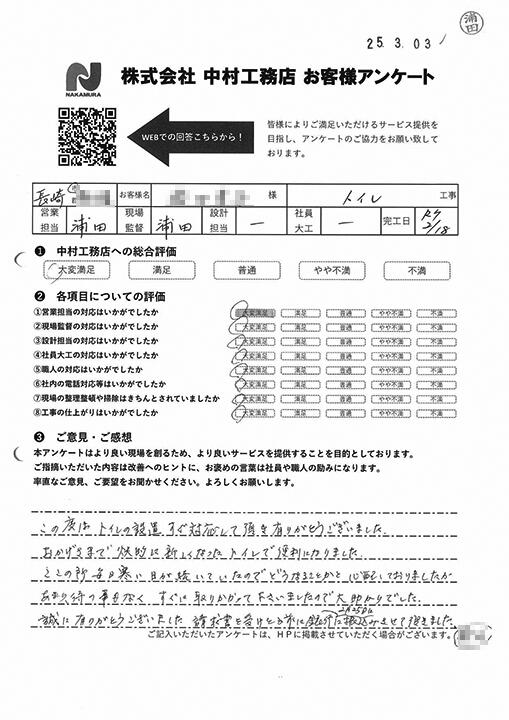 浦田
25.3.03
NAKAMURA
株式会社 中村工務店 お客様アンケート
WEBでの回答こちらから！
皆様によりご満足いただけるサービス提供を
目指し、アンケートのご協力をお願い致して
おります。
長崎 お客様名 様 トイレ 工事
営業担当 浦田 現場監督 浦田 設計担当 ー 社員大工 ー 完工日 R7 2/18
❶ 中村工務店への総合評価
大変満足 満足 普通 やや不満 不満
❷ 各項目についての評価
①営業担当の対応はいかがでしたか 大変満足 満足 普通 やや不満 不満
②現場監督の対応はいかがでしたか 大変満足 満足 普通 やや不満 不満
③設計担当の対応はいかがでしたか 大変満足 満足 普通 やや不満 不満
④社員大工の対応はいかがでしたか 大変満足 満足 普通 やや不満 不満
⑤職人の対応はいかがでしたか 大変満足 満足 普通 やや不満 不満
⑥社内の電話対応等はいかがでしたか 大変満足 満足 普通 やや不満 不満
⑦現場の整理整頓や掃除はきちんとされていましたか 大変満足 満足 普通 やや不満 不満
⑧工事の仕上がりはいかがでしたか 大変満足 満足 普通 やや不満 不満
❸ ご意見・ご感想
本アンケートはより良い現場を創るため、より良いサービスを提供することを目的としております。
ご指摘いただいた内容は改善へのヒントに、お褒めの言葉は社員や職人の励みになります。
率直なご意見、ご要望をお聞かせください。よろしくお願いします。
この度は トイレの設置 すぐ対応して頂き有りがとうございました。
おかげさまで 新しくなった トイレで便利になりました。
ここの所 毎日寒い日が続いていたのでどうなることかと心配しておりましたが
あまり待つ事もなく すぐに取りかかって下さいましたので大助かりでした。
誠に有りがとうございました 請求書を受けとる前に銀行に振込みさせて頂きました
2月25日に
ご記入いただいたアンケートは、HPに掲載させていただく場合がございます。